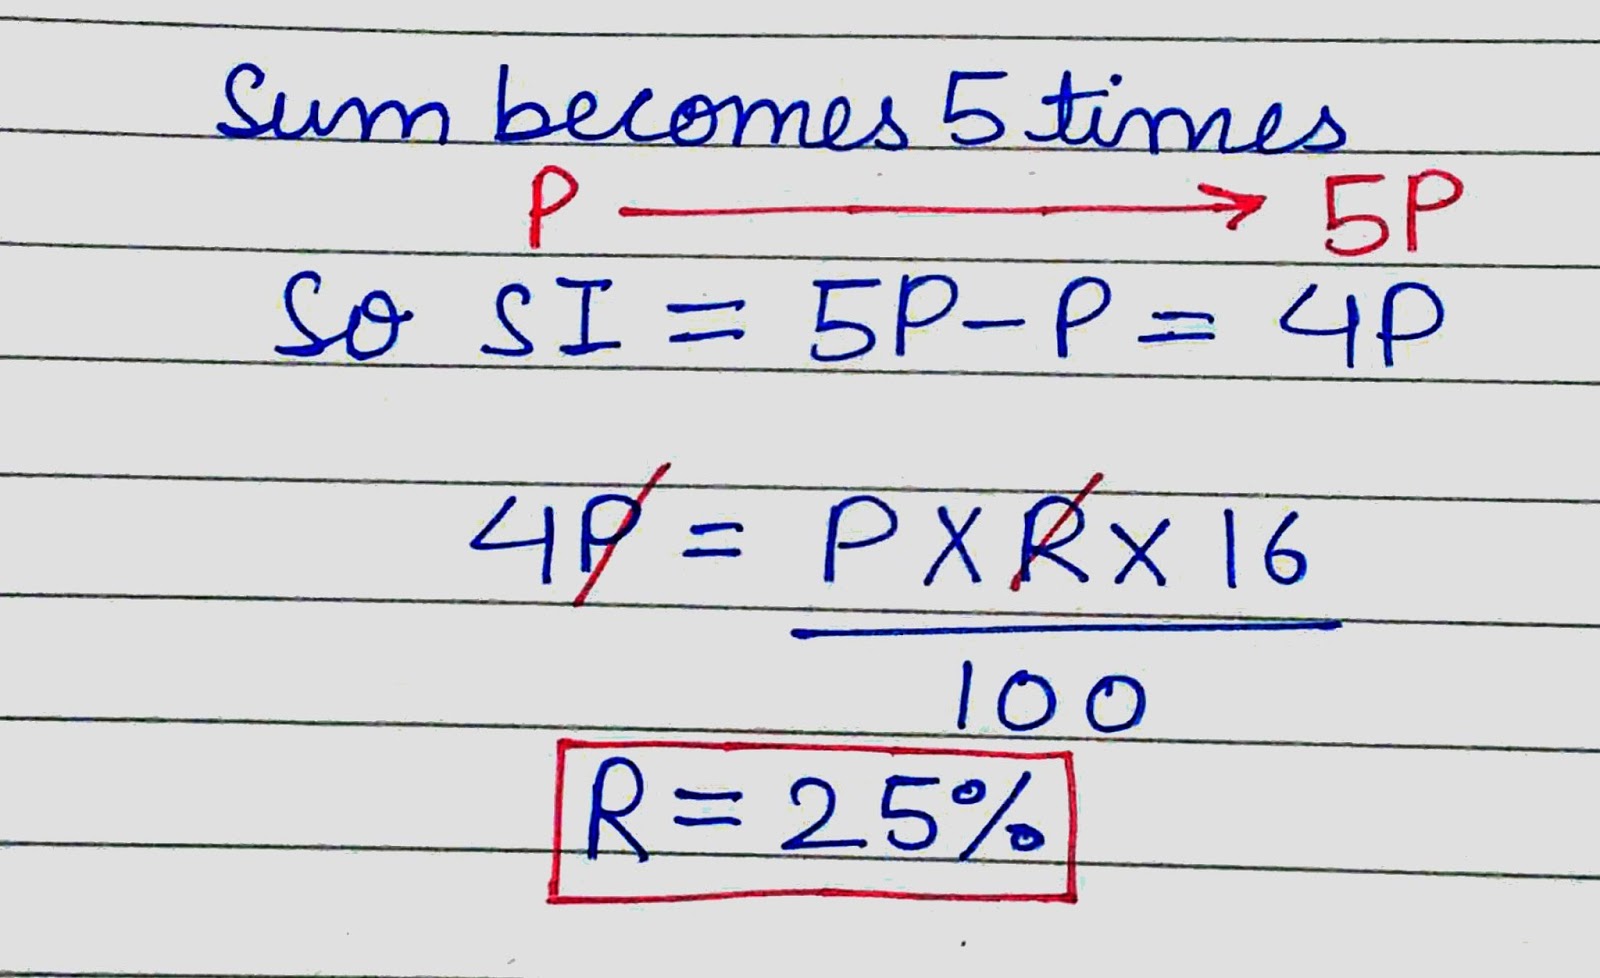 Sum becomes 5 times
P → 5P
So SI = 5P - P = 4P
4P = P X R X 16
100
R = 25%